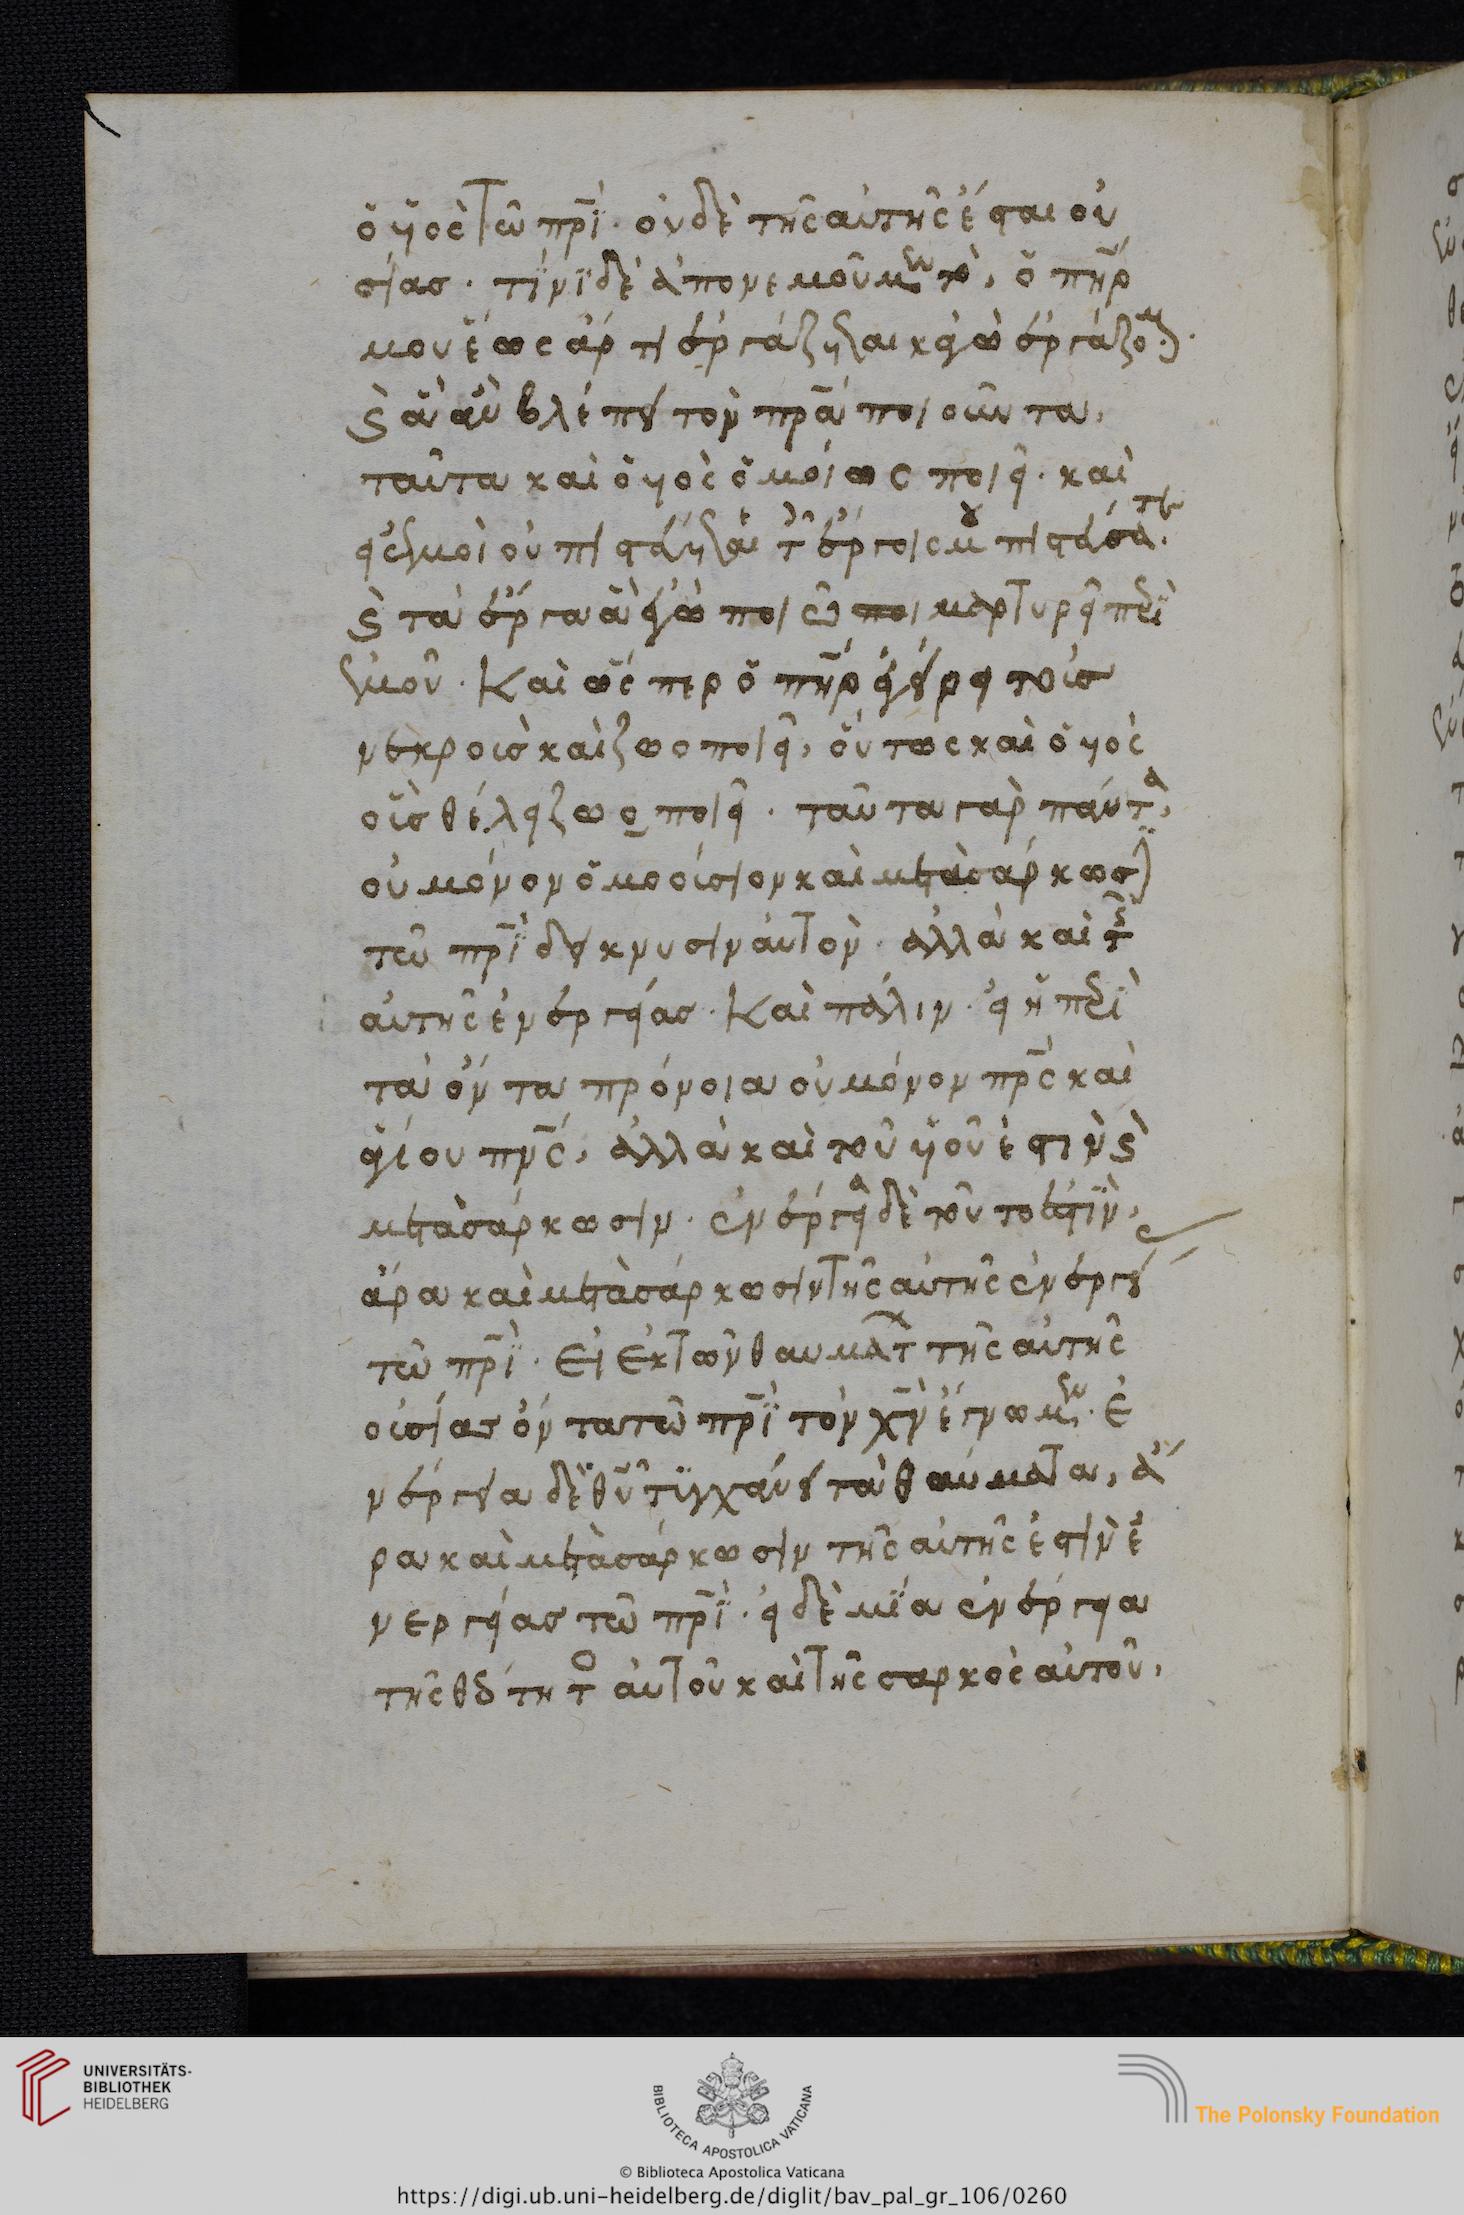 ὁ υἱὸς τῶ πρὶ. οὐδὲ τῆς αὐτῆς ἔσται οὐ
σίας. τίνι δὲ ἀπονεμοῦμεν τὸ, ὁ πηρ
μου ἕως ἄρτι ἐργάζεται κἀγὼ ἐργάζομαι.
καὶ ἃ ἂν βλέπει τὸν πρα ποιοῦντα,
ταῦτα καὶ ὁ υἱὸς ὁμοίως ποιεῖ. καὶ
εἰ ἐμοὶ οὐ πιστεύεται τοῖς ἔργοις μου πιστεύσατε.
καὶ τὰ ἔργα ἃ ἐγὼ ποιῶ μαρτυρεῖ περὶ
ἐμοῦ. Καὶ ὥσπερ ὁ πηρ ἐγείρει τοὺς
νεκροὺς καὶ ζωοποιεῖ, οὕτως καὶ ὁ υἱὸς
οὓς θέλει ζωοποιεῖ. ταῦτα γὰρ πάντα,
οὐ μόνον ὁμοούσιον καὶ μετὰ σάρκωσιν
τῶ πρὶ δεικνυσιν αὐτὸν. ἀλλὰ καὶ τῆς
αὐτῆς ἐνεργείας. Καὶ πάλιν. εἰ ἡ περὶ
τὰ ὄντα πρόνοια οὐ μόνον πρς καὶ
ἁγίου πνς, ἀλλὰ καὶ τοῦ υἱοῦ ἐστὶν καὶ
μετὰ σάρκωσιν. ἐνέργεια δὲ τοῦτο ἐστὶν,
ἄρα καὶ μετὰ σάρκωσιν τῆς αὐτῆς ἐνεργεί
τῶ πρὶ. Εἰ ἐκ τῶν θαυμάτων τῆς αὐτῆς
οὐσίας ὄντα τῶ πρὶ τὸν χν ἔγνωμεν. ἐ
νέργεια δὲ θυ τυγχάνει τὰ θαύματα, ἄ
ρα καὶ μετὰ σάρκωσιν τῆς αὐτῆς ἐστὶν ἐ
νεργείας τῶ πρὶ. εἰ δὲ μία ἐνέργεια
τῆς θεότητος αὐτοῦ καὶ τῆς σαρκὸς αὐτοῦ,
UNIVERSITÄTS-
BIBLIOTHEK
HEIDELBERG
BIBLIOTECA APOSTOLICA VATICANA
© Biblioteca Apostolica Vaticana
The Polonsky Foundation
https://digi.ub.uni-heidelberg.de/diglit/bav_pal_gr_106/0260